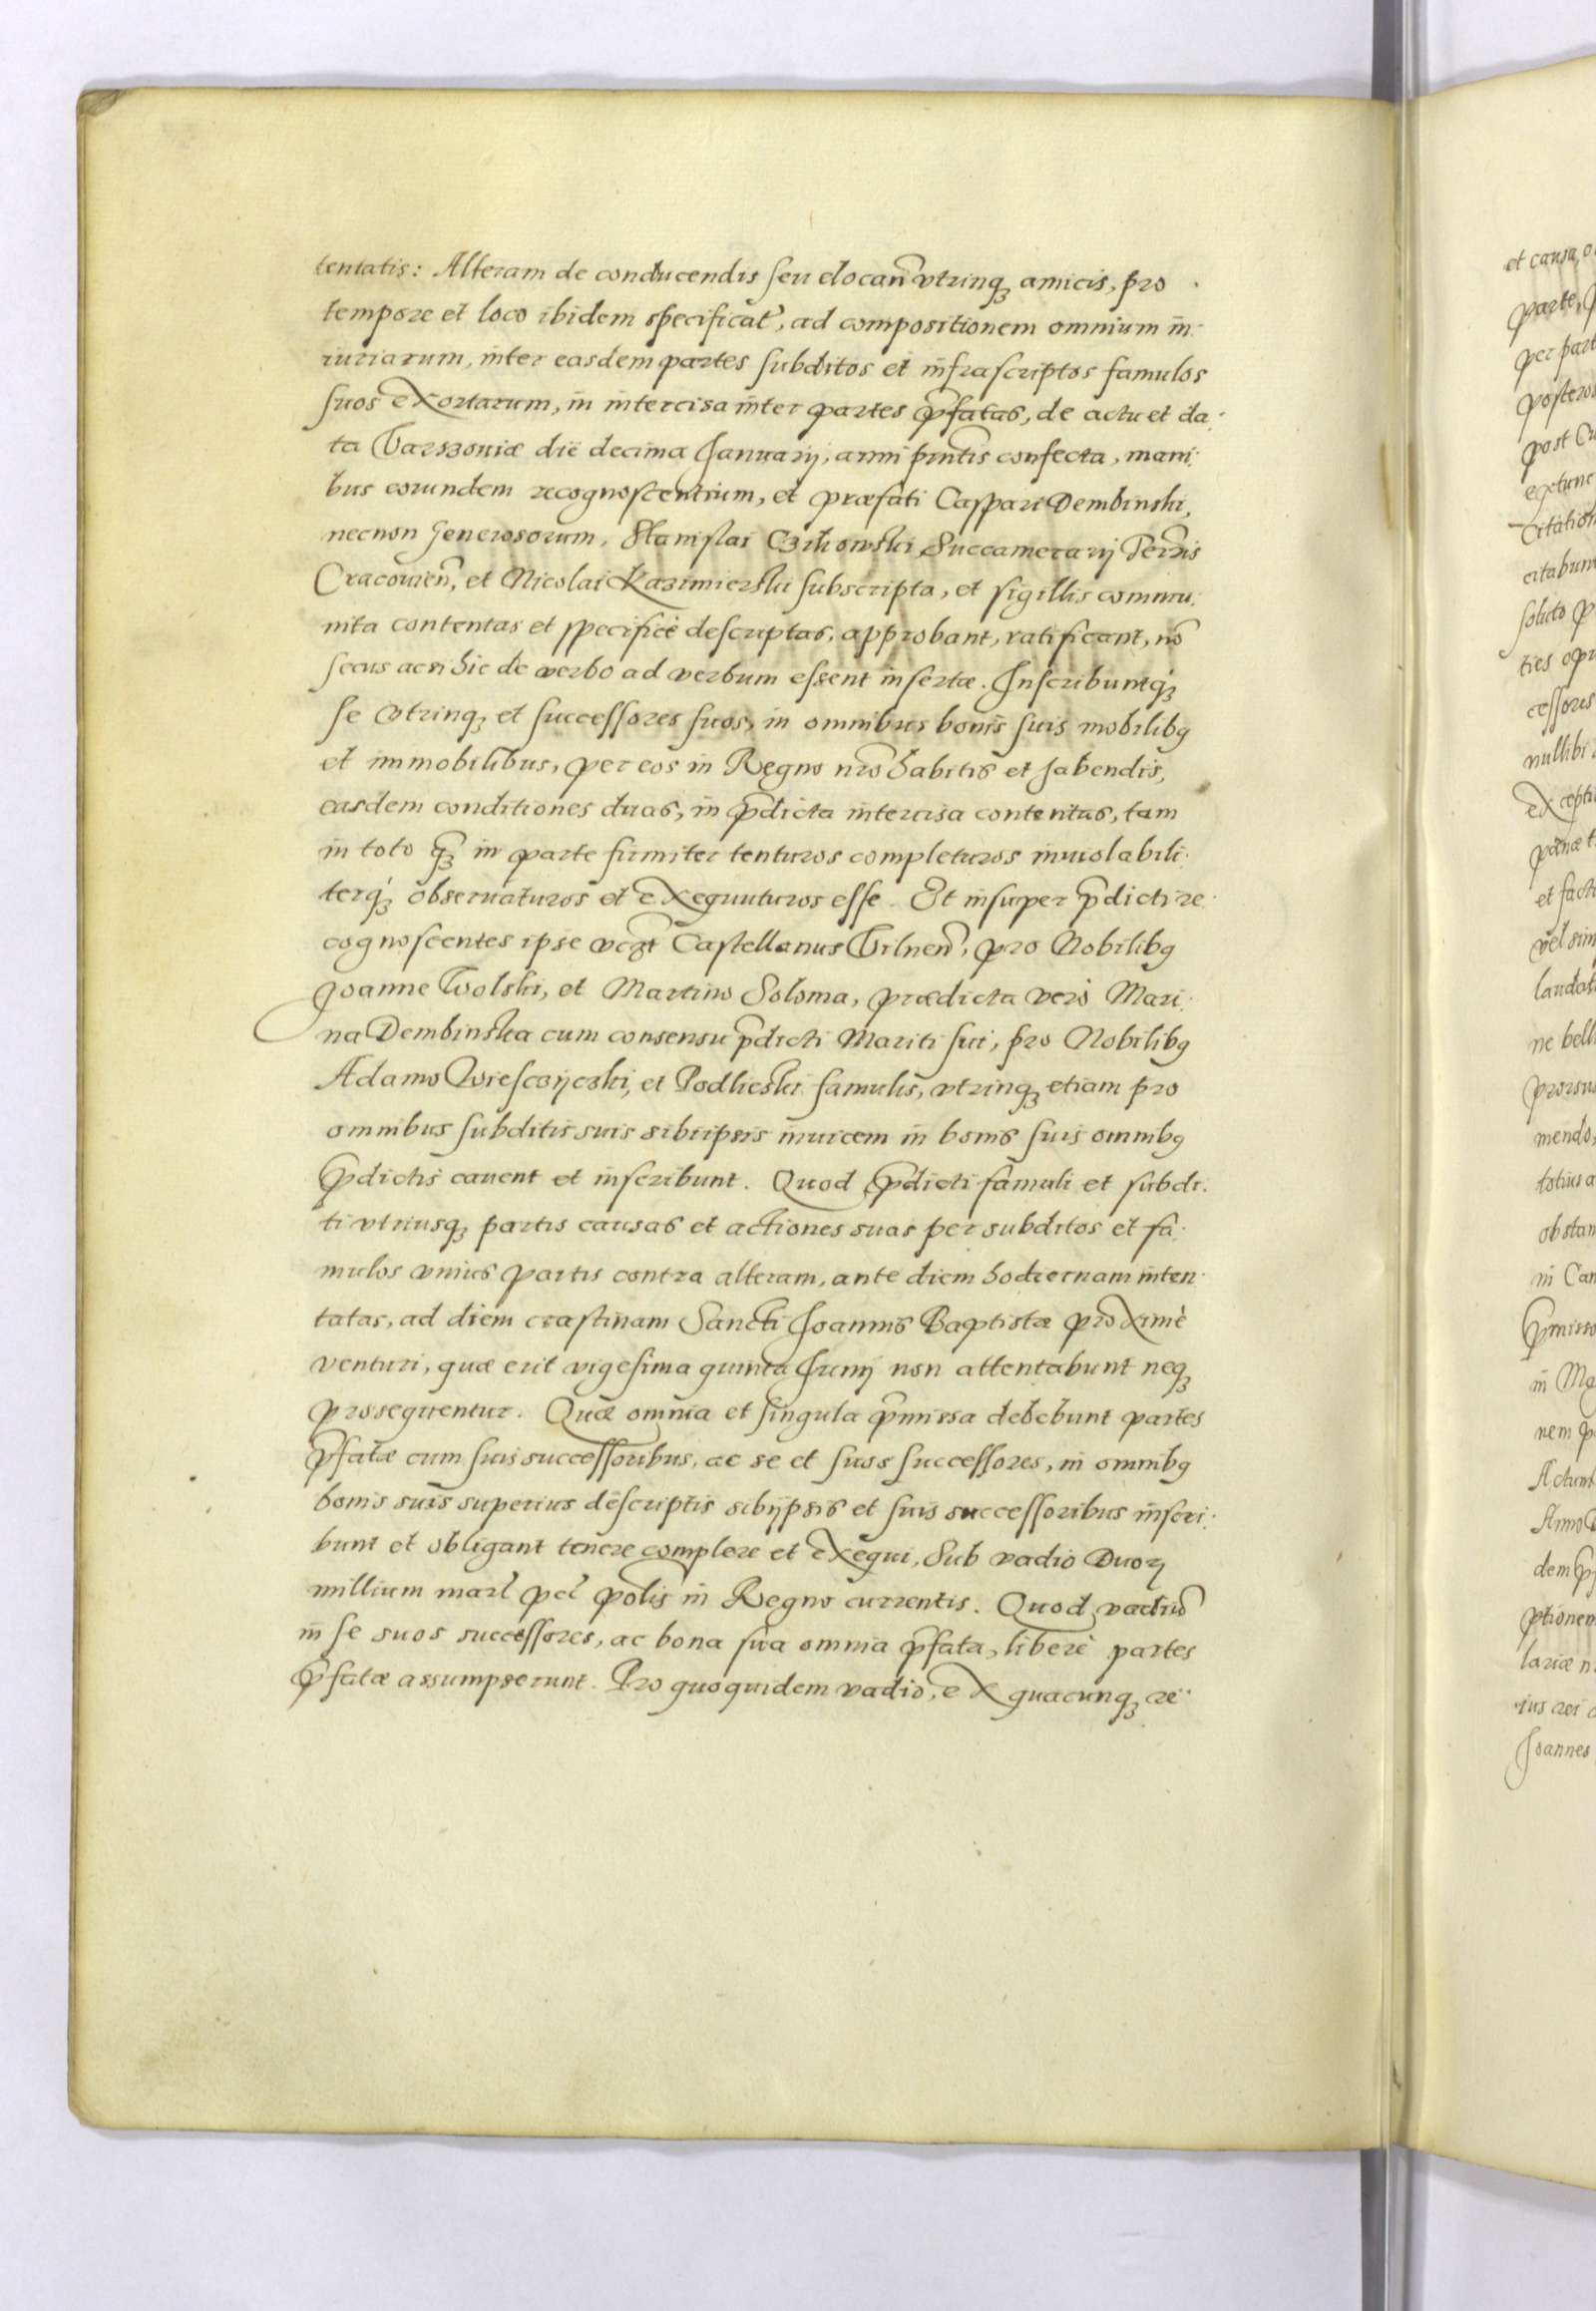 tentatis: Alteram de conducendis seu elocan̄ vtrinq₃ amicis, pro
tempore et loco ibidem specificat̉, ad compositionem omnium in
iuriarum, inter easdem partes subditos et infrascriptos famulos
suos exortarum, in intercisa inter partes p̄fatas, de actu et da
ta Varszoviæ die decima Januarij, anni pn̄tis confecta, mani
bus eorundem recognoscentium, et præfati Caspari Dembinski,
necnon Generosorum, Stanislai Czikowski Succamerarij Terris
Cracovien̄, et Nicolai Kazimierski subscripta, et sigillis commu
nita contentas et specificè descriptas, approbant, ratificant, nō
secus ac si hic de verbo ad verbum essent insertæ. Inscribuntq₃
se vtrinq₃ et successores suos, in omnibus bonis suis mobilibꝯ
et immobilibus, per eos in Regno nrō habitis et habendis,
easdem conditiones duas, in p̄dicta intercisa contentas, tam
in toto q̄₃ in parte firmiter tenturos completuros inuiolabili
terq₃ obseruaturos et exequuturos esse. Et insuper p̄dicti re
cognoscentes ipse Castellanus Vilnen̄, pro Nobilibꝯ
Joanne Wolski, et Martino Soloma, prædicta verò Mari
na Dembinska cum consensu p̄dicti Mariti sui, pro Nobilibꝯ
Adamo et Podlieski famulis, vtrinq₃ etiam pro
omnibus subditis suis sibiipsis inuicem in bonis suis omnibꝯ
p̄dictis cauent et inscribunt. Quod p̄dicti famuli et subdi
ti vtriusq₃ partis causas et actiones suas per subditos et fa
mulos vnius partis contra alteram, ante diem hodiernam inten
tatas, ad diem crastinam Sancti Joannis Baptistæ proximè
venturi, quæ erit vigesima quinta Junij non attentabunt neq₃
prosequentur. Quæ omnia et singula p̄missa debebunt partes
p̄fatæ cum suis successoribus, ac se et suos successores, in omnibꝯ
bonis suis superius descriptis sibijpsis et suis successoribus inscri
bunt et obligant tenere complere et exequi, Sub vadio Duoꝝ
millium marl pcl polis in Regno currentis. Quod vadiū
in se suos successores, ac bona sua omnia p̄fata, liberè partes
p̄fatæ assumpserunt. Pro quoquidem vadio, ex quacunq₃ re